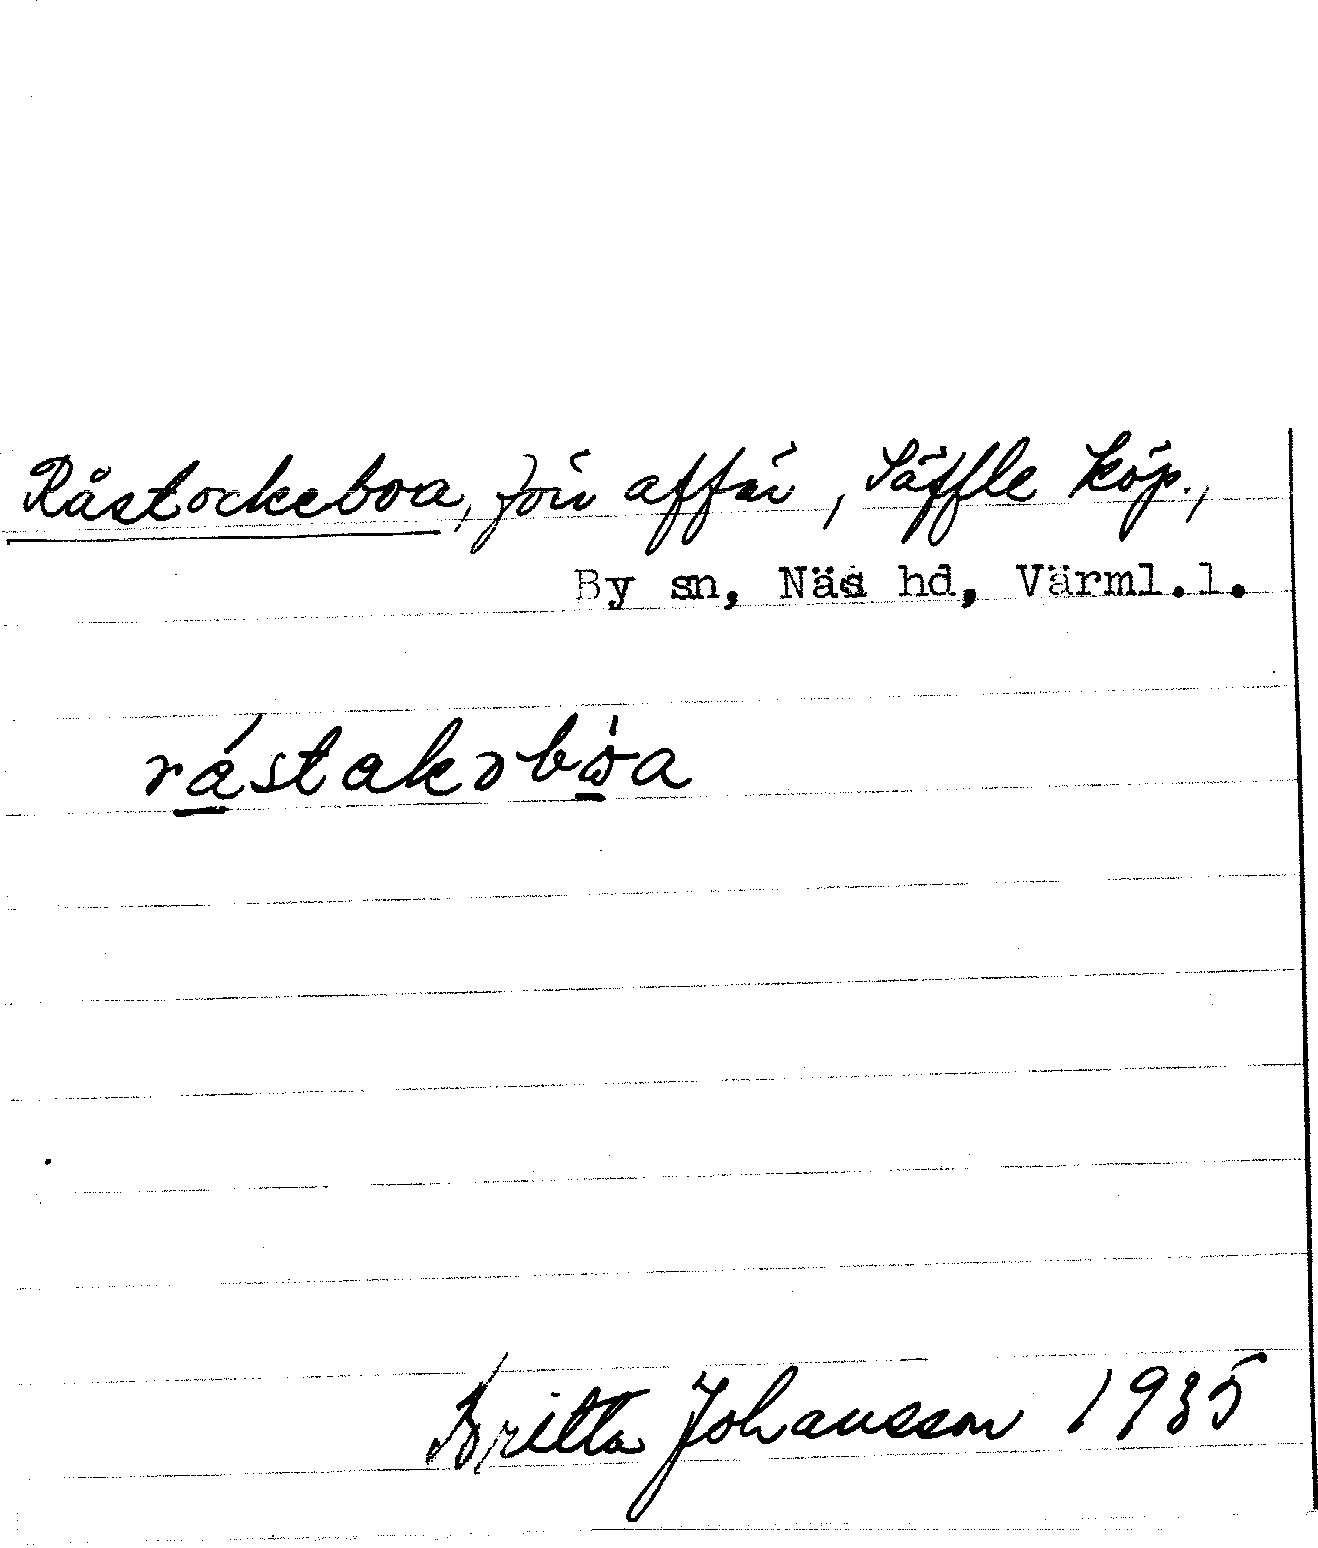 Råstockeboa, förr affär, Säffle köp.,
By sn, Näs hd, Värml.l.
Britta Johansson 1935